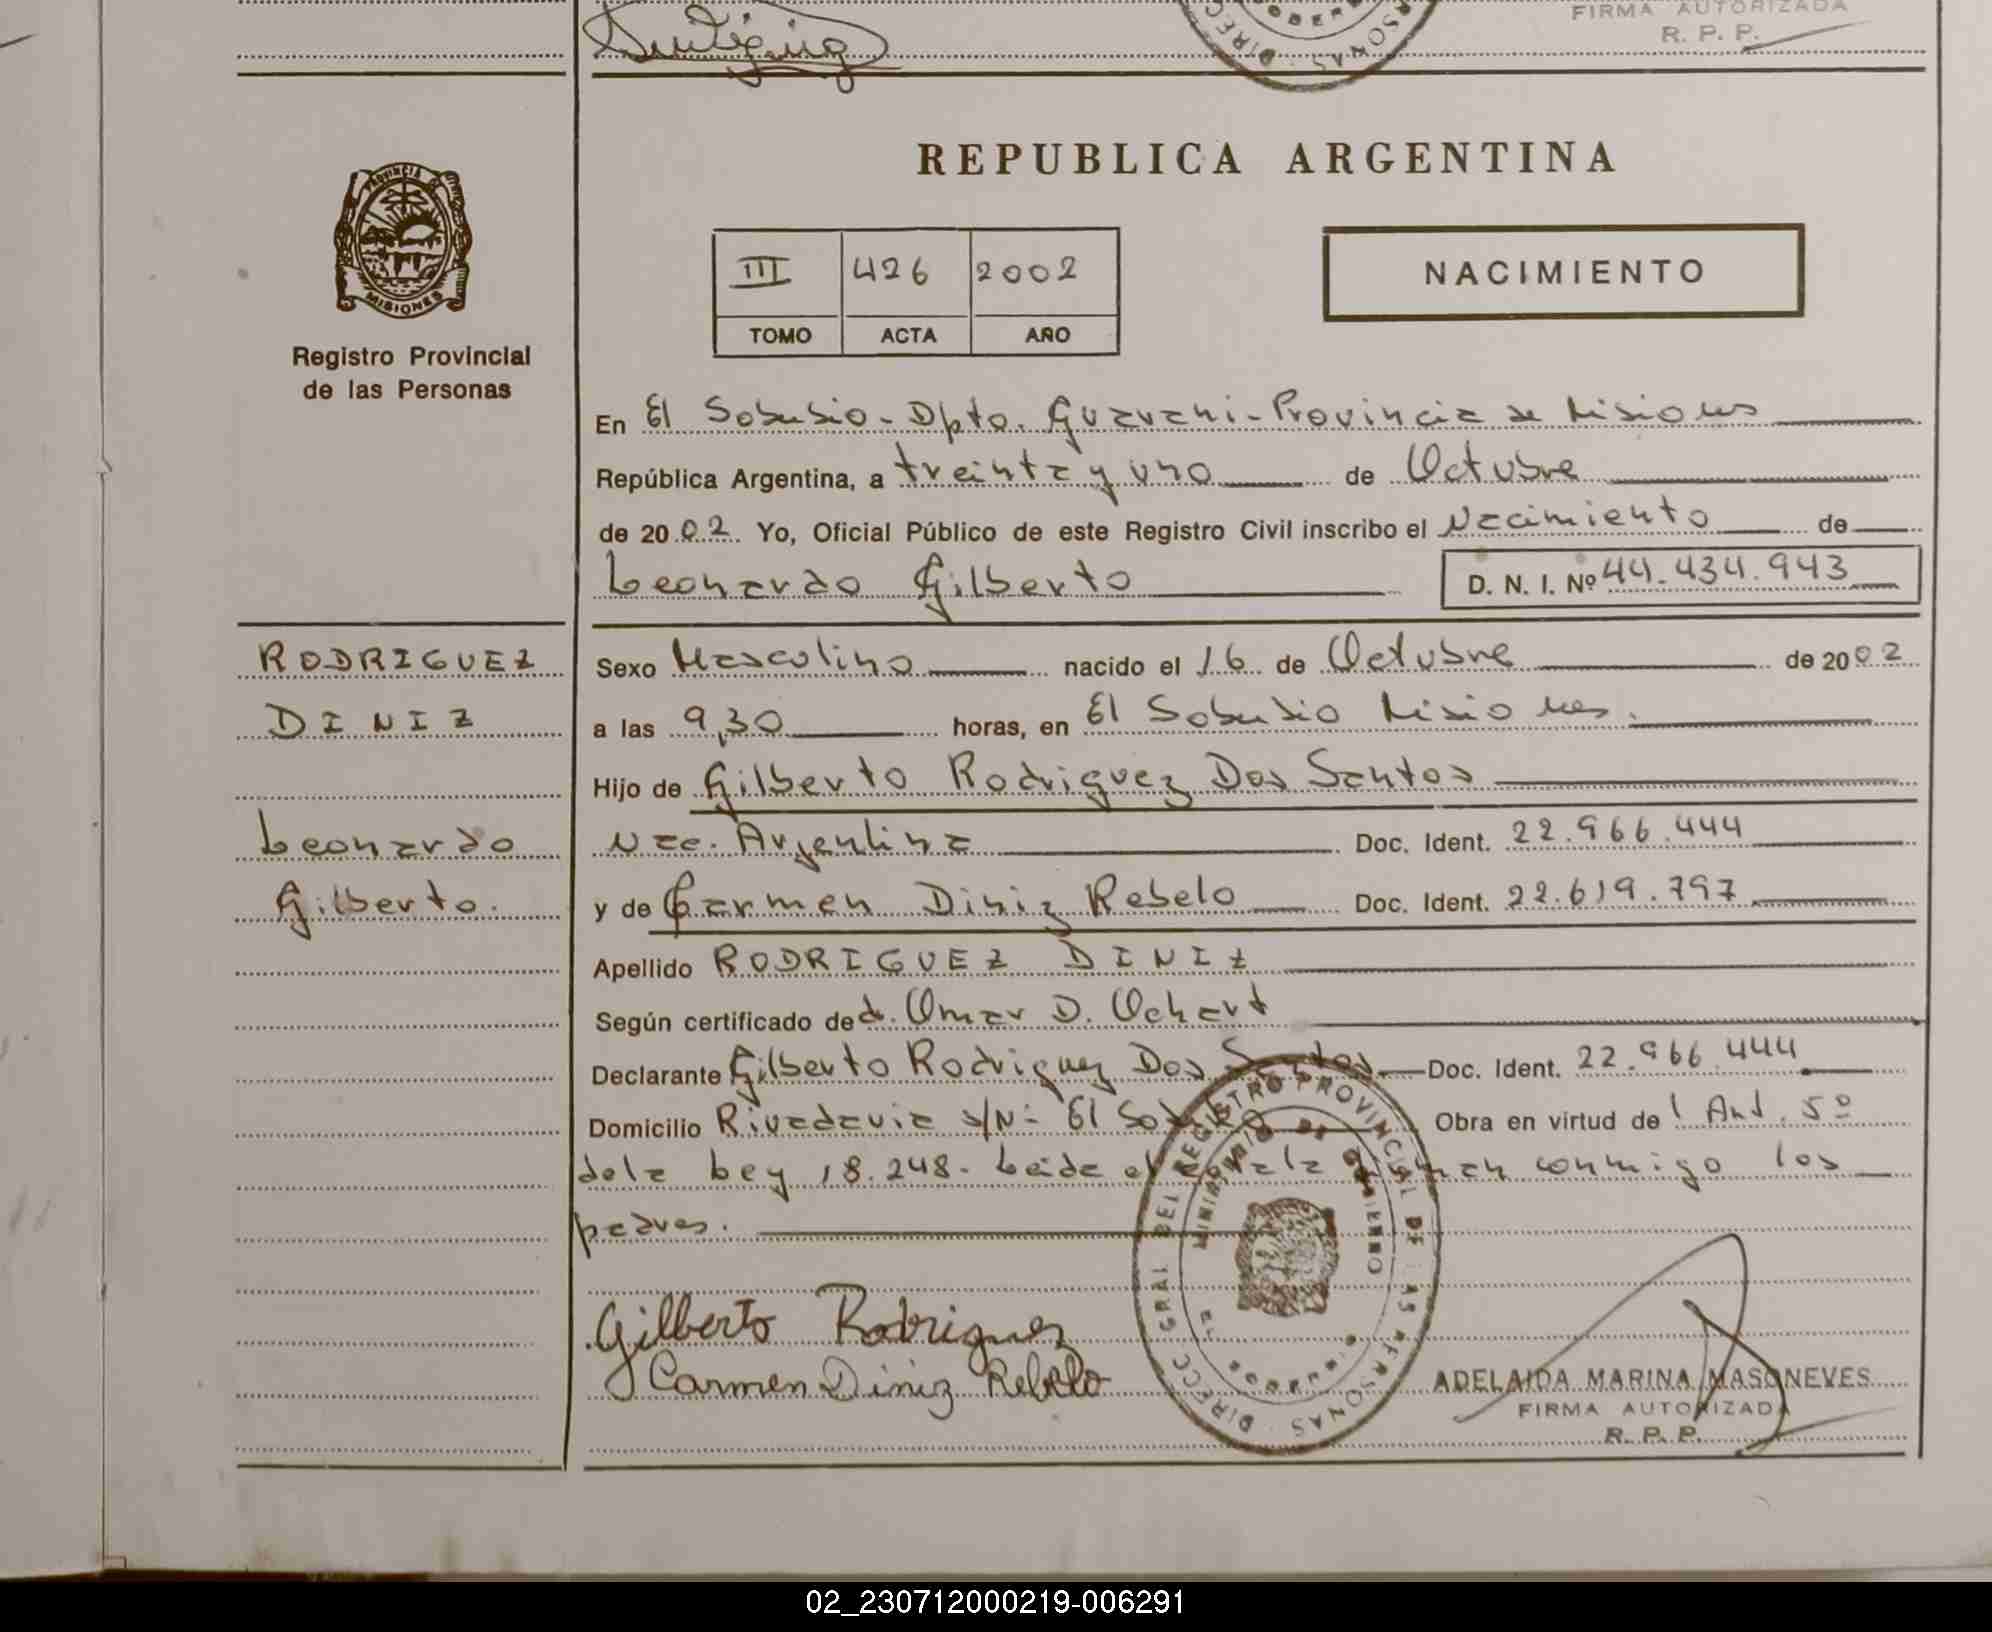 FIRMA AUTORIZADA
R. P. P.
REPUBLICA ARGENTINA
PROVINCIA DE
MISIONES
Registro Provincial
de las Personas
III 426 2002
TOMO ACTA AÑO
NACIMIENTO
En El Soberbio - Dpto. Guarani - Provincia de Misiones
República Argentina, a treinta y uno de Octubre
de 2002 Yo, Oficial Público de este Registro Civil inscribo el Nacimiento de
Leonardo Gilberto D. N. I. Nº 44.434.943
RODRIGUEZ
DINIZ
Leonardo
Gilberto.
Sexo Masculino nacido el 16 de Octubre de 2002
a las 9,30 horas, en El Soberbio Misiones.
Hijo de Gilberto Rodriguez Dos Santos
Nac. Argentina Doc. Ident. 22.966.444
y de Carmen Diniz Rebelo Doc. Ident. 22.619.797
Apellido RODRIGUEZ DINIZ
Según certificado de d. Omar D. Ochart
Declarante Gilberto Rodriguez Dos Santos Doc. Ident. 22.966.444
Domicilio Rivadavia s/N - El Soberbio Obra en virtud de l Art. 5º
de la Ley 18.248. Leida el acta la firman conmigo los
padres.
DIREC. GRAL. DEL REGISTRO PROVINCIAL DE LAS PERSONAS
MINISTERIO DE GOBIERNO
Gilberto Rodriguez
Carmen Diniz Rebelo
ADELAIDA MARINA MASONEVES
FIRMA AUTORIZADA
R. P. P.
02_230712000219-006291